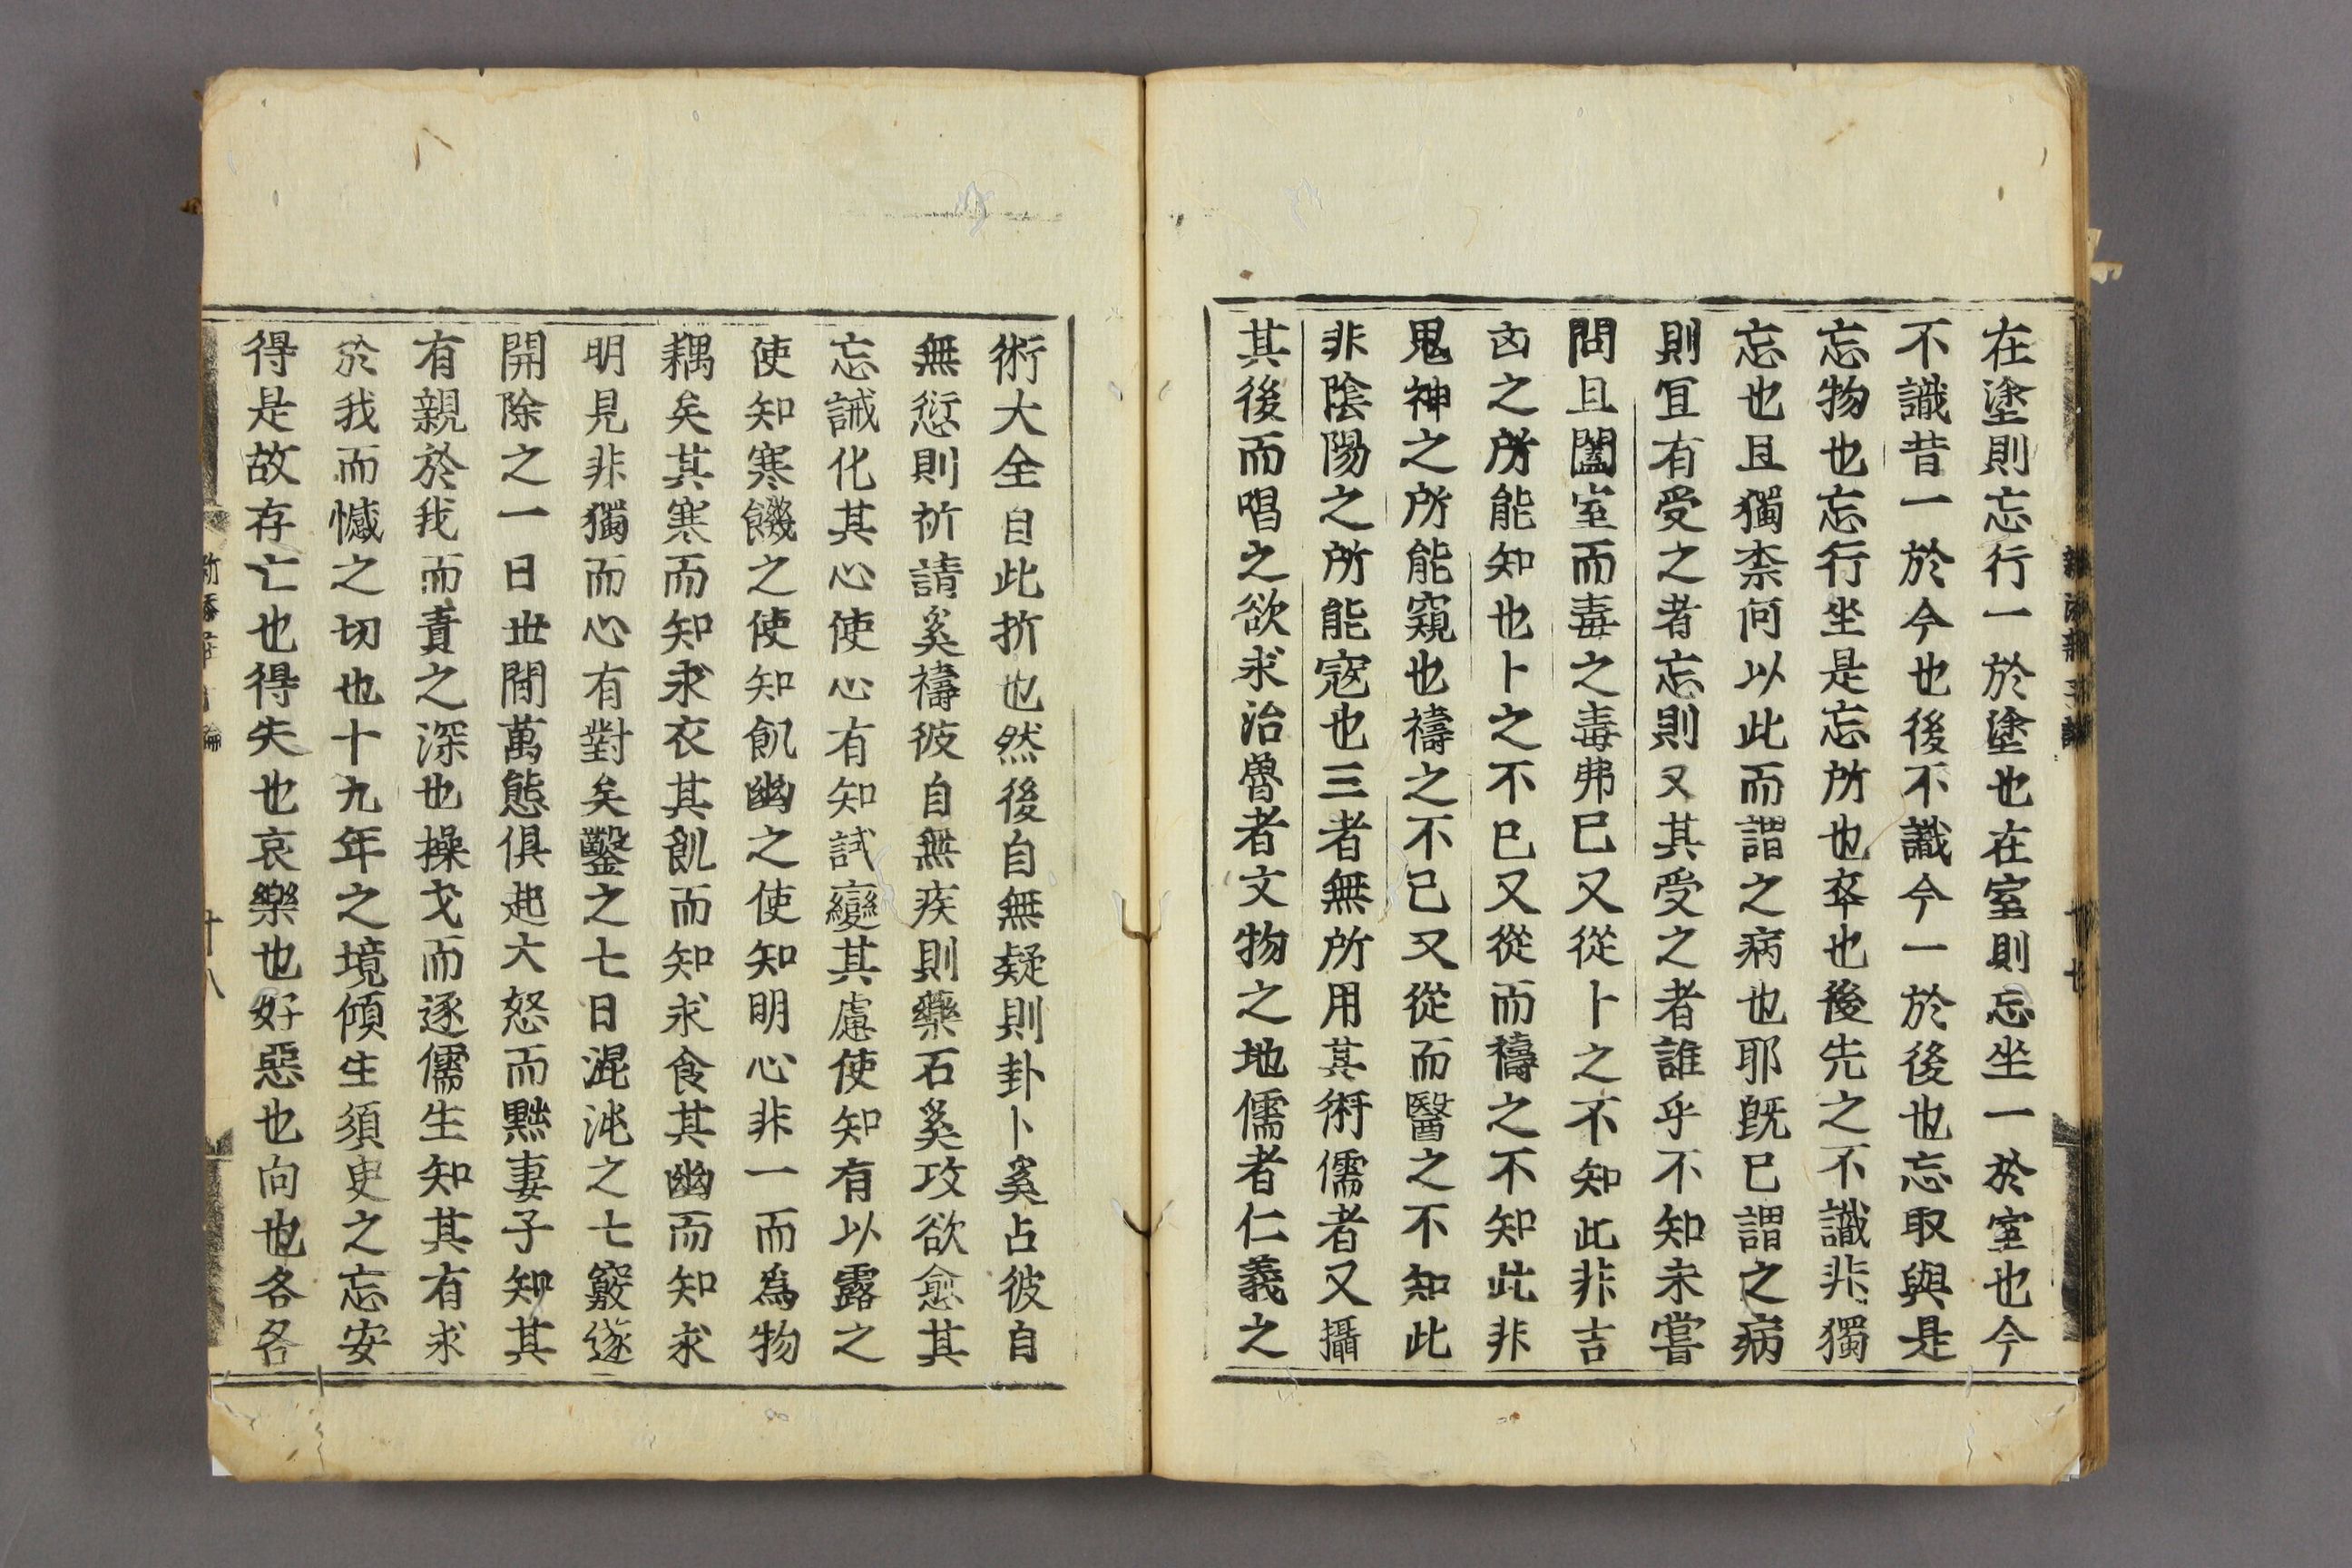 在塗則忘行一於塗也在室則忘坐一於室也今
不識昔一於今也後不識今一於後也忘取與是
忘物也忘行坐是忘所也卒也後先之不識非獨
忘也且獨柰何以此而謂之病也耶旣已謂之病
則冝有受之者忘則又其受之者誰乎不知未嘗
問且闔室而毒之毒弗已又從卜之不知此非吉
凶之所能知也卜之不已又從而禱之不知此非
鬼神之所能窺也禱之不已又從而醫之不知此
非陰陽之所能寇也三者無所用其術儒者又攝
其後而唱之欲求治魯者文物之地儒者仁義之
術大全自此折也然後自無疑則卦卜奚占彼自
無愆則祈請奚禱彼自無疾則藥石奚攻欲愈其
忘誡化其心使心有知試變其慮使知有以露之
使知寒饑之使知飢幽之使知明心非一而爲物
耦矣其寒而知求衣其飢而知求食其幽而知求
明見非獨而心有對矣鑿之七日混沌之七竅遂
開除之一日丗間萬態俱起大怒而黜妻子知其
有親於我而責之深也操戈而逐儒生知其有求
於我而憾之切也十九年之境傾生須臾之忘安
得是故存亡也得失也哀樂也好惡也向也各各
十八